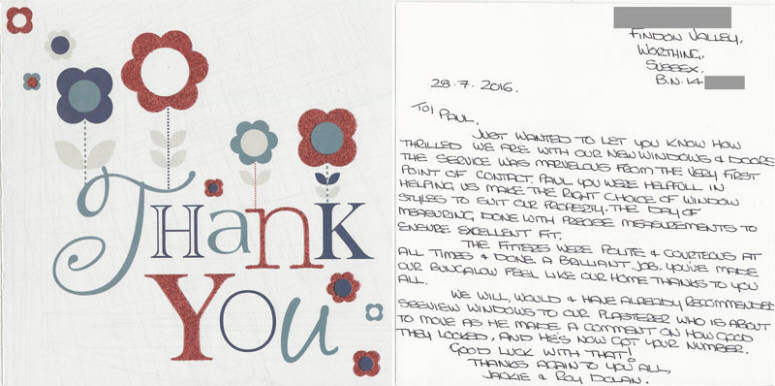 Thank
You
Findon Valley,
Worthing,
Sussex.
B.N.14
28.7.2016.
To/ Paul,
Just wanted to let you know how
thrilled we are with our new windows & doors
the service was marvelous from the very first
point of contact. Paul you were helpfull in
helping us make the right choice of window
styles to suit our property. The day of
measuring done with precise measurements to
ensure excellent fit.
The fitters were polite & courteous at
all times & done a brilliant job. You've made
our bungalow feel like our home thanks to you
all.
We will, would & have already recommended
Seeview Windows to our plasterer who is about
to move as he made a comment on how good
they looked, and he's now got your number.
Good luck with that!
Thanks again to you all,
Jackie & Roy Dolan.